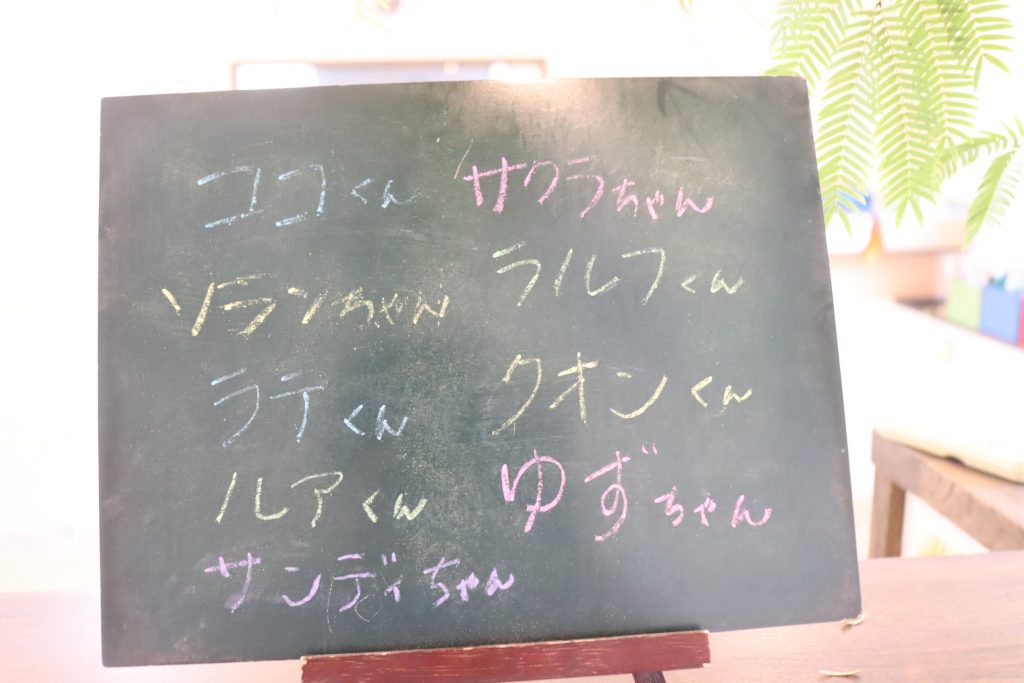 ココくん
ソランちゃん
ラテくん
ルアくん
サンディちゃん
サクラちゃん
ラルフくん
クオンくん
ゆずちゃん